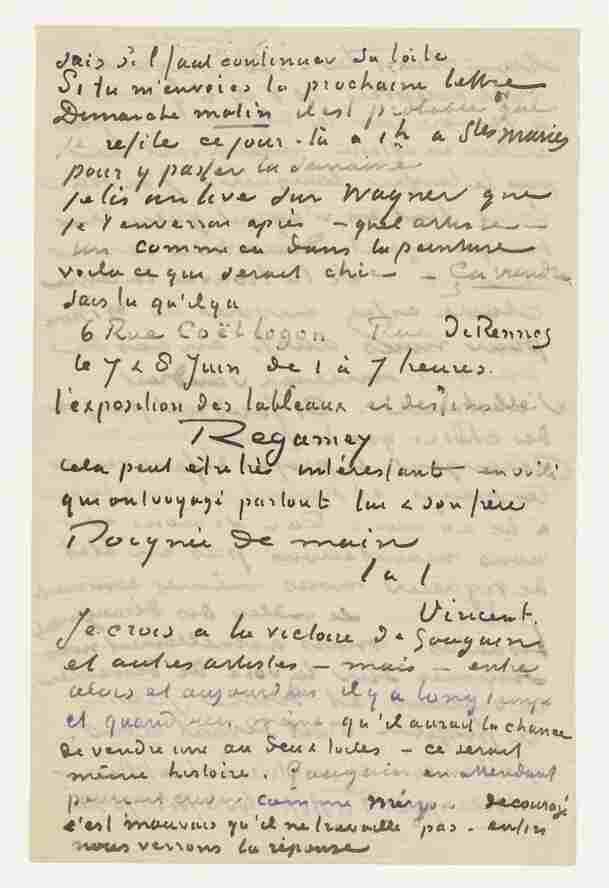 sais s'il faut continuer sa toile
Si tu m'envoies la prochaine lettre
Dimanche matin il est probable que
je refile ce jour-là a 1h a Stes Maries
pour y passer la semaine
je lis un livre sur Wagner que
je t'enverrai après – quel artiste –
un comme ca dans la peinture
voila ce qui serait chic – Ca viendra
Sais tu qu'il y a
6 Rue Coëtlogon Rue de Rennes
le 7 & 8 Juin de 1 à 7 heures.
l'exposition des tableaux et des
Regamey
cela peut être très intéressant en voilà
qui ont voyagé partout lui & son frère
Poignée de main
t. à t.
Vincent.
Je crois a la victoire de Gauguin
et autres artistes – mais – entre
alors et aujourdhui il y a longtemps
et quand même qu'il aurait la chance
de vendre une ou deux toiles – ce serait
même histoire. Gauguin en attendant
pourrait crever comme méryon découragé
c'est mauvais qu'il ne travaille pas – enfin
nous verrons la réponse